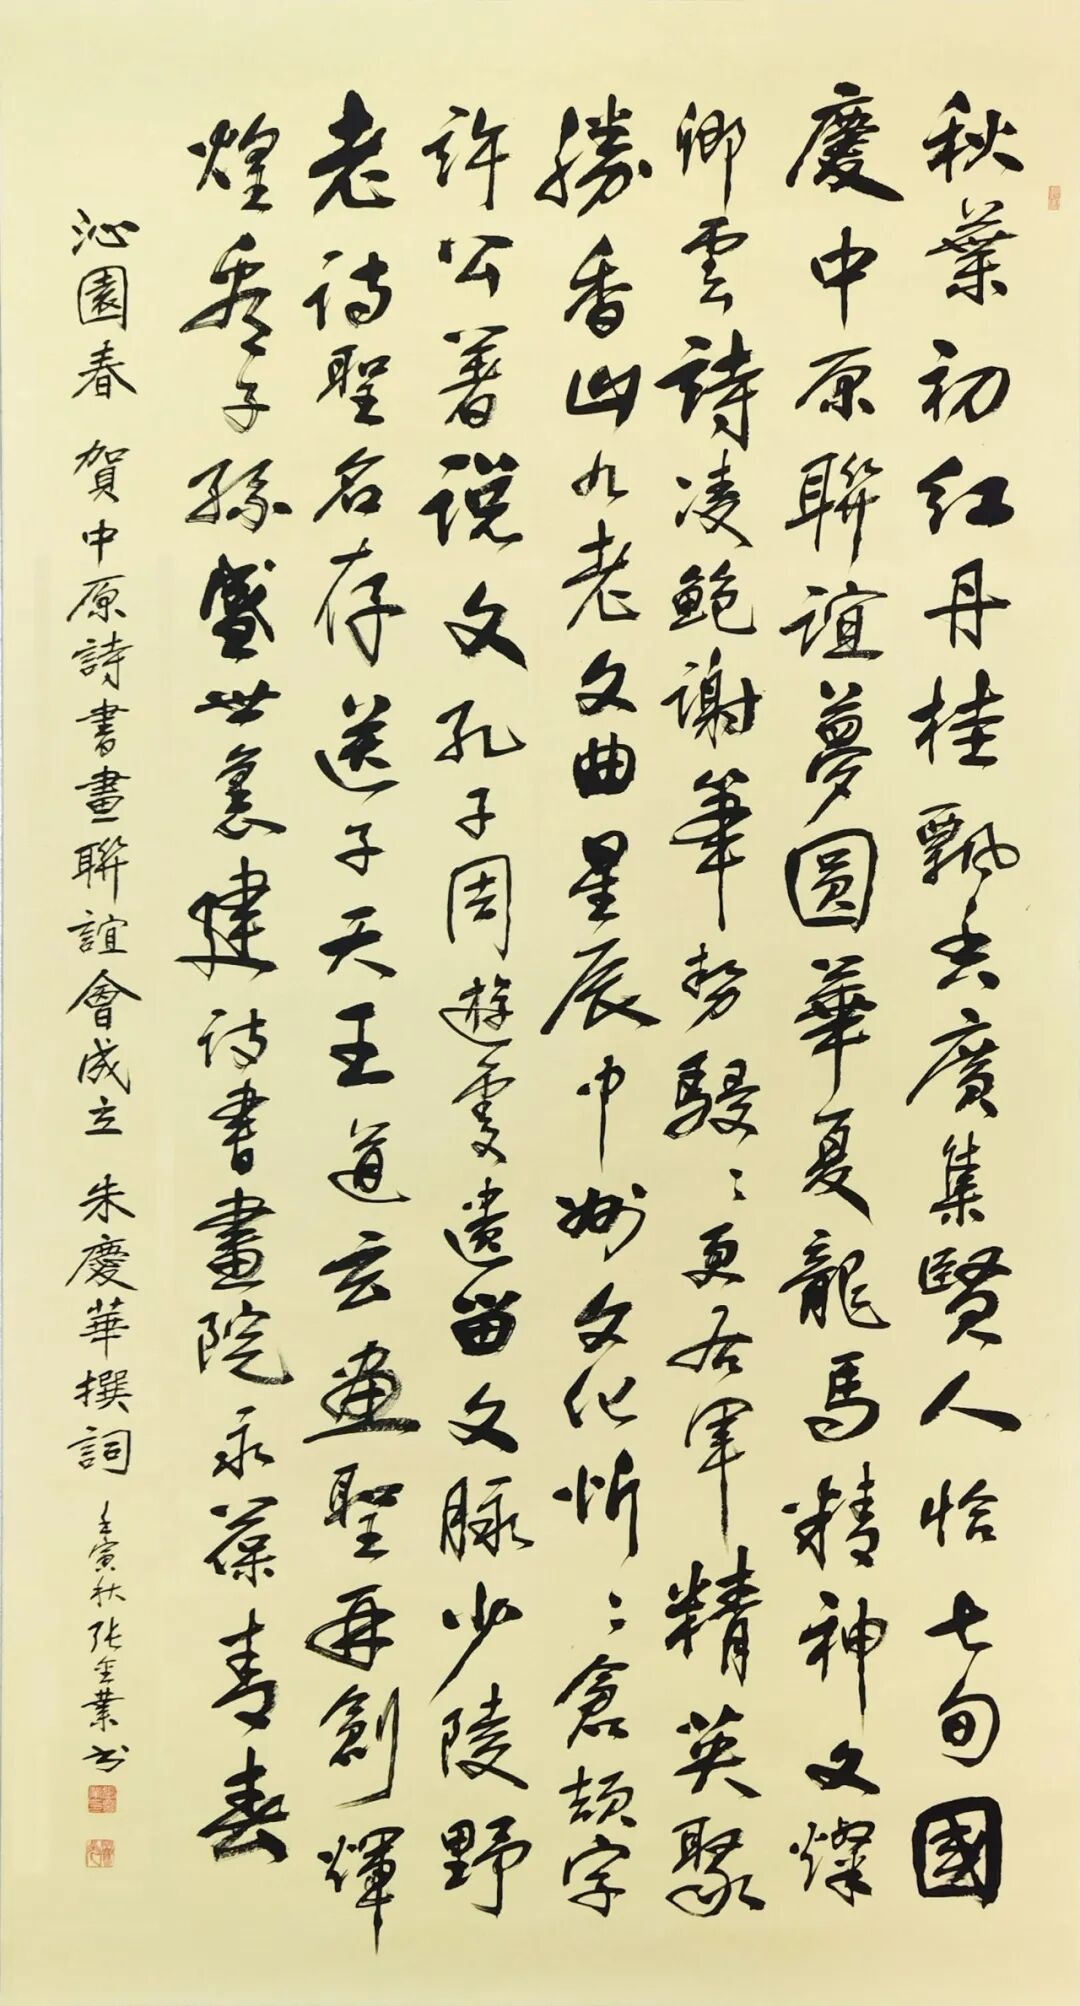 秋葉初红丹桂飄香廣集賢人恰七旬國
慶中原聯誼夢圓華夏龍馬精神文燦
卿雲詩凌鲍謝筆势駸〻更右軍精英聚
勝香山九老文曲星辰中州文化忻〻倉颉字
許公著説文孔子周遊處遺留文脉少陵野
老诗聖名存送子天王道玄画聖再創輝
煌看子孫盛世裏建诗書畫院永葆青春
沁園春 賀中原詩書畫聯誼會成立 朱慶華撰詞 壬寅秋张金業书